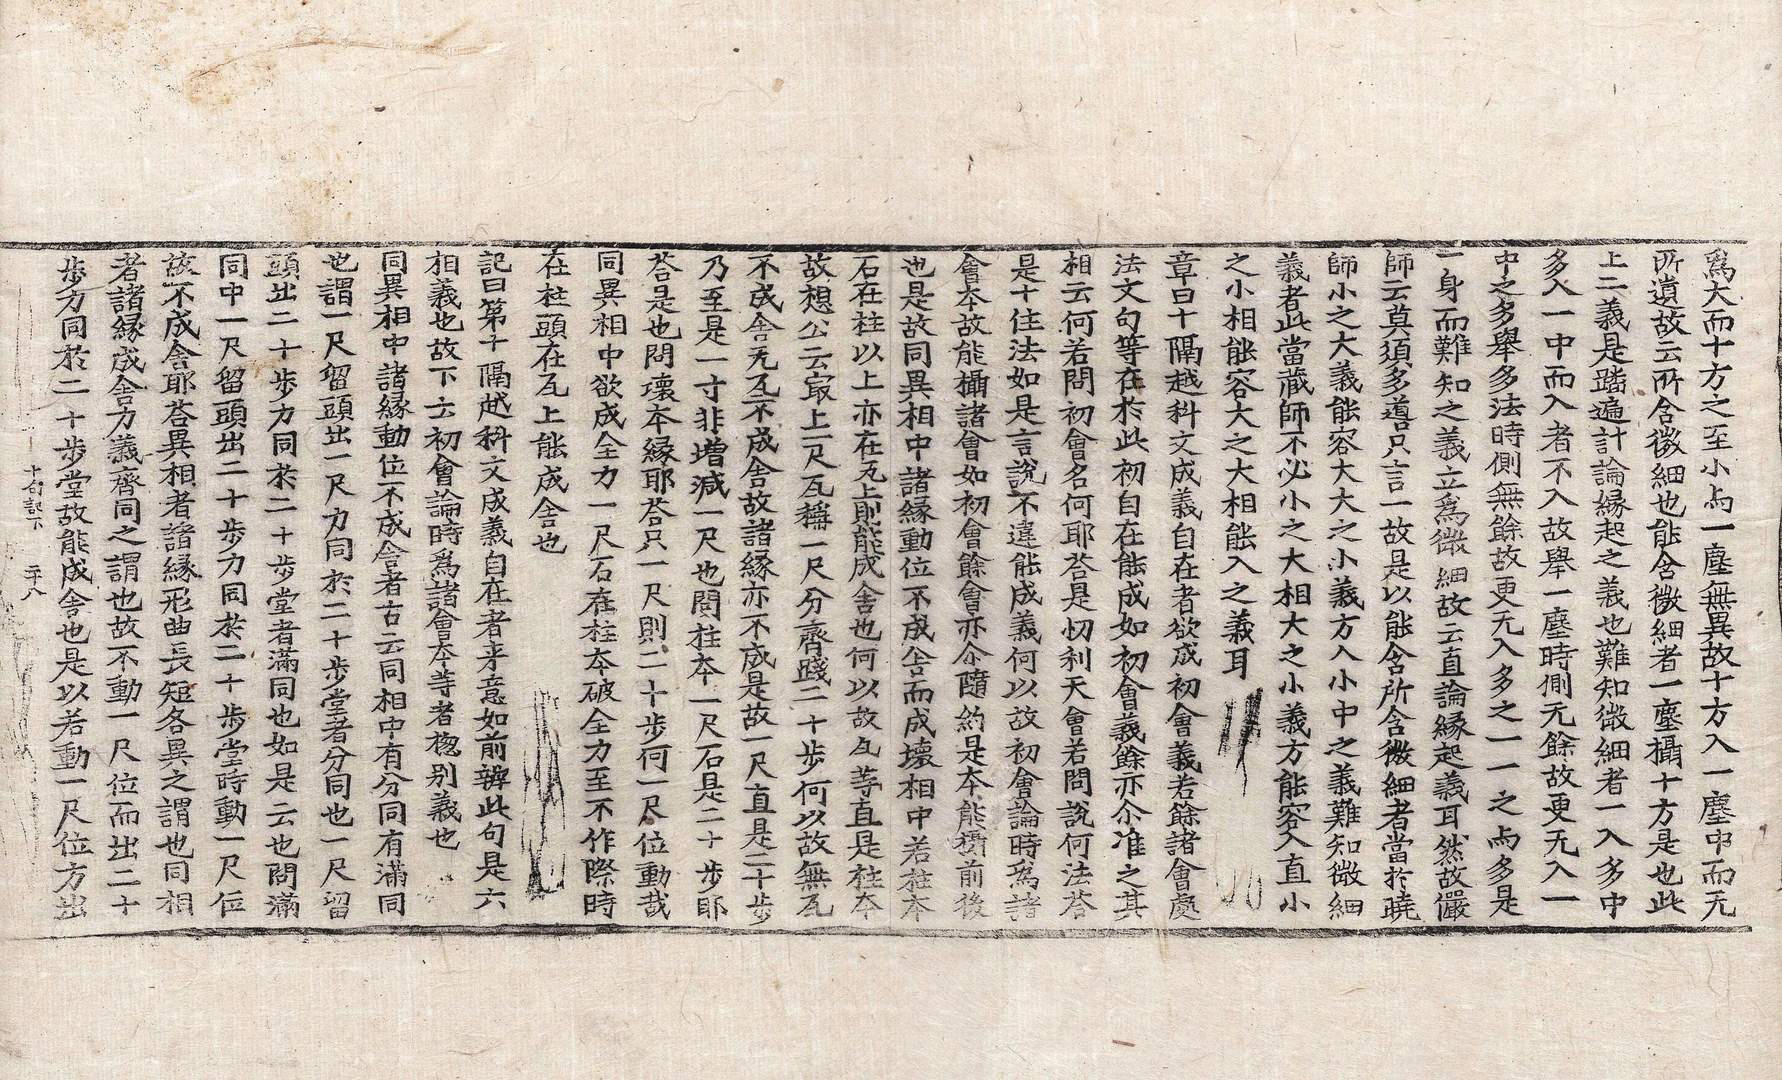 爲大而十方之至小与一塵無異故十方入一塵中而无
所遺故云所含微細也能含微細者一塵攝十方是也此
上二義是踏遍計論緣起之義也難知微細者一入多中
多入一中而入者不入故舉一塵時側无餘故更无入一
中之多舉多法時側無餘故更无入多之一一之与多是
一身而難知之義立爲微細故云直論緣起義耳然故儼
師云莫須多噵只言一故是以能含所含微細者當於曉
師小之大義能容大大之小義方入小中之義難知微細
義者此當藏師不必小之大相大之小義方能容入直小
之小相能容大之大相能入之義耳
章曰十隔越科文成義自在者欲成初會義若餘諸會處
法文句等在於此初自在能成如初會義餘亦尒准之其
相云何若問初會名何耶荅是忉利天會若問說何法荅
是十住法如是言說不違能成義何以故初會論時爲諸
會本故能攝諸會如初會餘會亦尒隨約是本能攝前後
也是故同異相中諸緣動位不成舍而成壞相中若柱本
石在柱以上亦在瓦上則能成舍也何以故瓦等直是柱本
故想公云㝡上一尺瓦稱一尺分齊踐二十步何以故無瓦
不成舍无瓦不成舍故諸緣亦不成是故一尺直是二十步
乃至是一寸非增減一尺也問柱本一尺石是二十步耶
荅是也問壞本緣耶荅只一尺則二十步何一尺位動哉
同異相中欲成全力一尺石在柱本破全力至不作際時
在柱頭在瓦上能成舍也
記曰第十隔越科文成義自在者章意如前辨此句是六
相義也故下云初會論時爲諸會本等者揔别義也
同異相中諸緣動位不成舍者古云同相中有分同有滿同
也謂一尺留頭出一尺力同於二十步堂者分同也一尺留
頭出二十步力同於二十步堂者滿同也如是云也問滿
同中一尺留頭出二十步力同於二十步堂時動一尺位
故不成舍耶荅異相者諸緣形曲長短各異之謂也同相
者諸緣成舍力義齊同之謂也故不動一尺位而出二十
十句記下 二十八
步力同於二十步堂故能成舍也是以若動一尺位方出